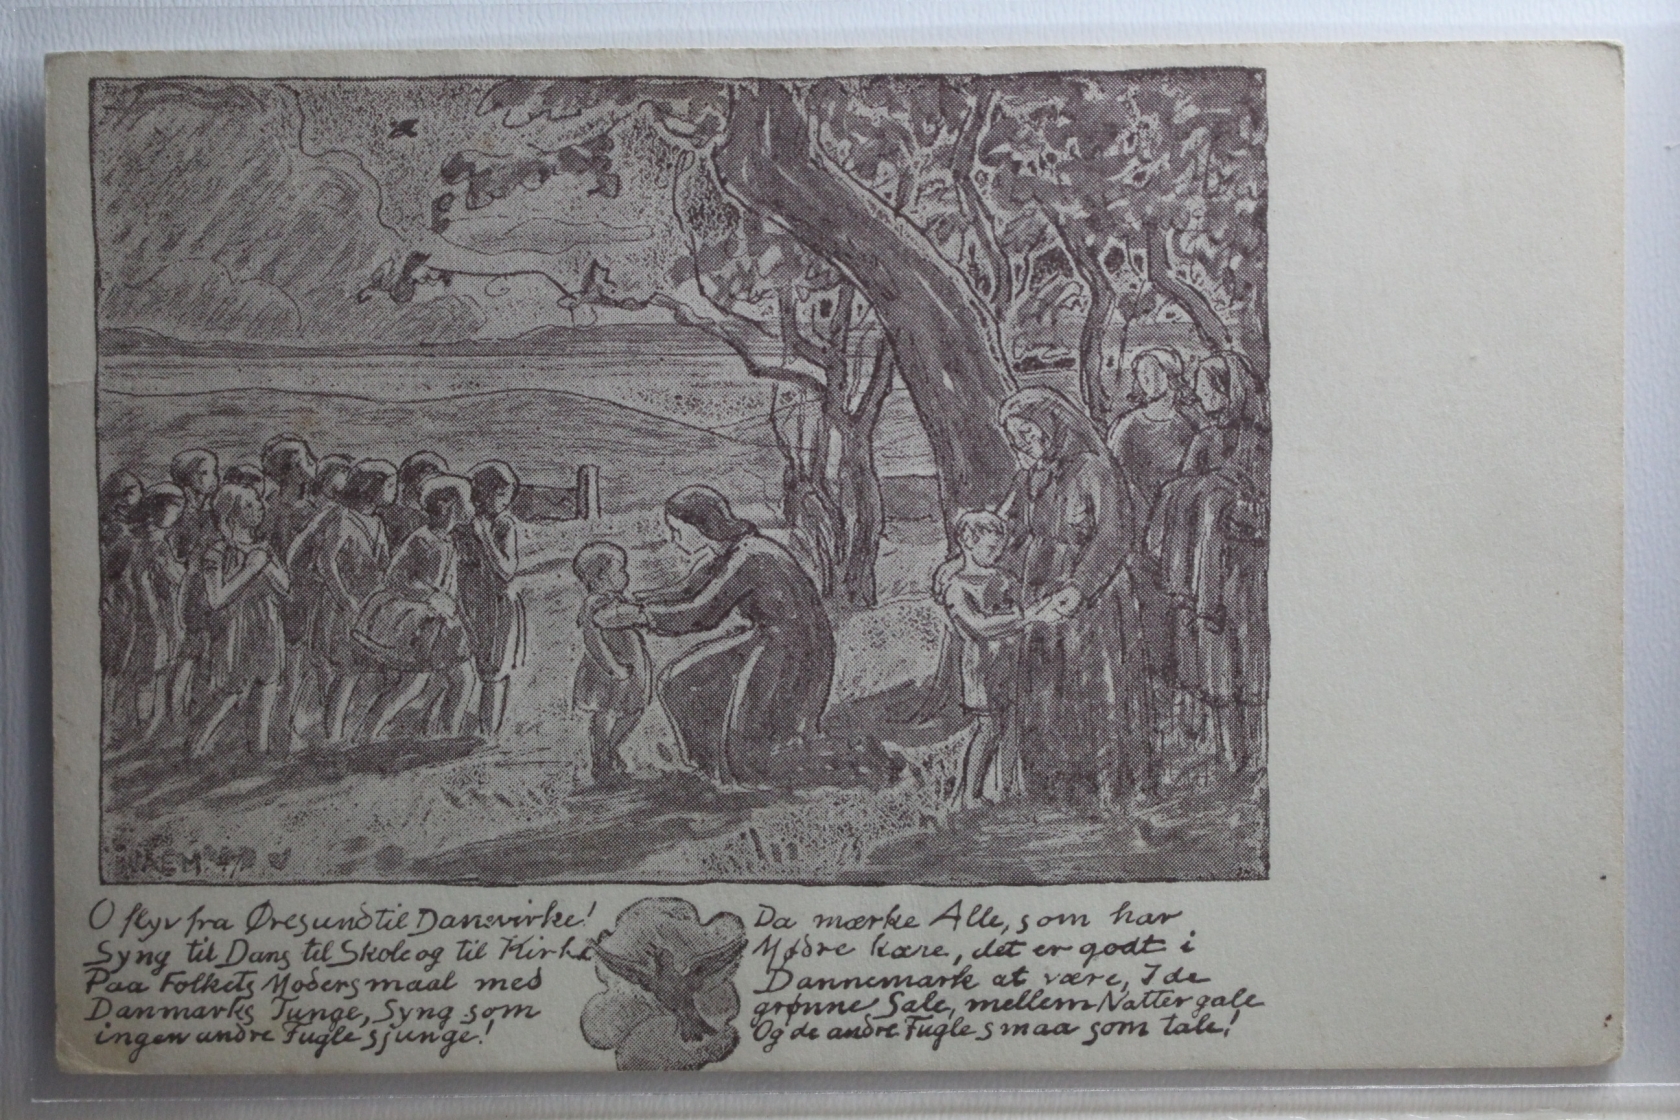 O flyv fra Øresund til Dansvirke!
Syng til Dans til Skole og til Kirke
Paa Folkets Modersmaal med
Danmarks Tunge, Syng som
ingen andre Fugle sjunge!
Da mærke Alle, som har
Mødre kære, det er godt i
Dannemark at være, I de
grønne Sale, mellem Nattergale
Og de andre Fugle smaa som tale!